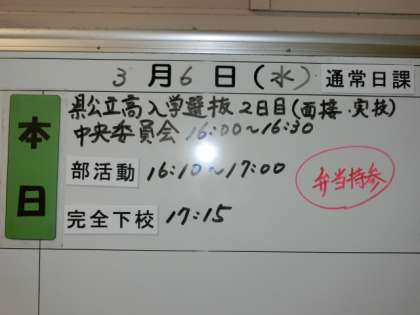 3月6日(水) 通常日課
本日
県公立高入学選抜 2日目(面接・実技)
中央委員会 16:00~16:30
部活動 16:10~17:00
弁当持参
完全下校 17:15